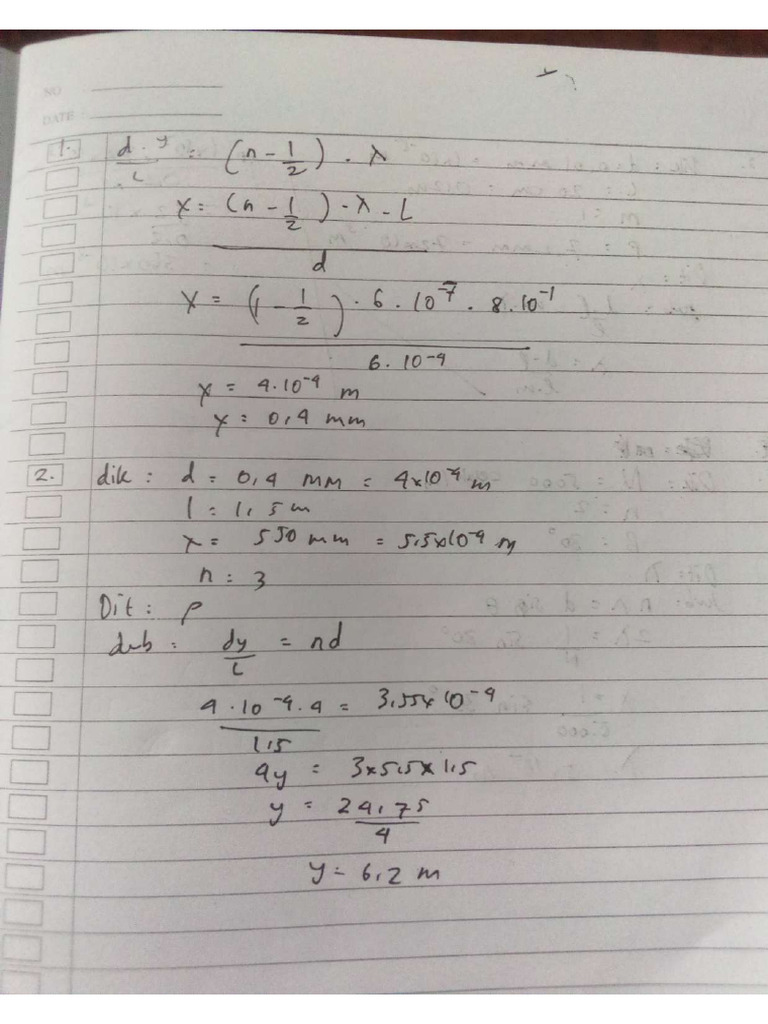 NO
DATE
1. d . y / L = (n - 1/2) . λ
x = (n - 1/2) - λ - L
d
x = (1 - 1/2) . 6 . 10⁻⁷ . 8 . 10⁻¹
6 . 10⁻⁴
x = 4 . 10⁻⁴ m
y = 0,4 mm
2. dik : d = 0,4 mm = 4x10⁻⁴ m
l = 1,5 m
x = 550 mm = 5,5x10⁻⁴ m
n = 3
Dit : p
dy / L = nd
4 . 10⁻⁴ . 4 = 3,55x10⁻⁴
1,5
4y = 3x5,5x1,5
y = 24,75
4
y = 6,2 m